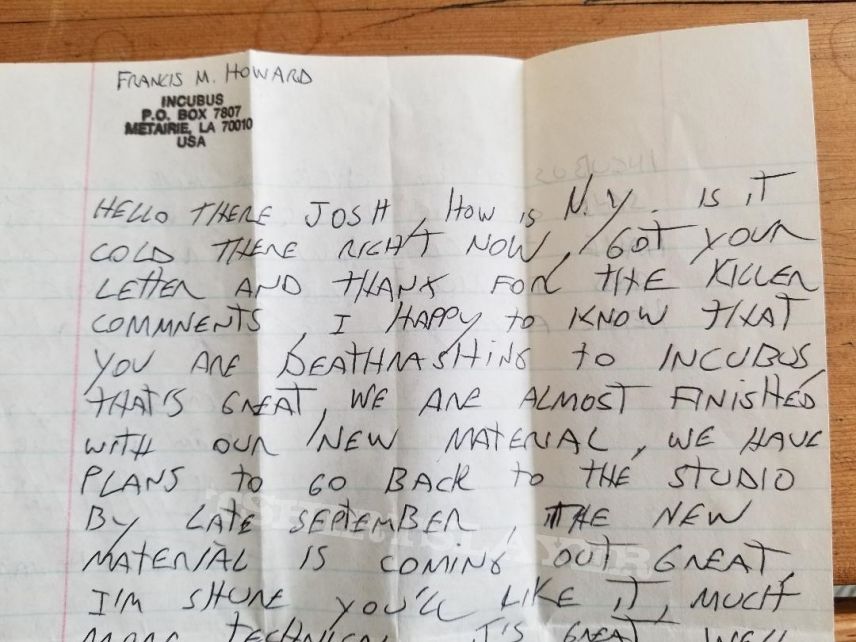 FRANCIS M. HOWARD
INCUBUS
P.O. BOX 7807
METAIRIE, LA 70010
USA
HELLO THERE JOSH, HOW IS N.Y. IS IT
COLD THERE RIGHT NOW, GOT YOUR
LETTER AND THANX FOR THE KILLER
COMMNENTS, I HAPPY TO KNOW THAT
YOU ARE DEATHRASHING TO INCUBUS,
THAT'S GREAT, WE ARE ALMOST FINISHED
WITH OUR NEW MATERIAL, WE HAVE
PLANS TO GO BACK TO THE STUDIO
BY LATE SEPTEMBER, THE NEW
MATERIAL IS COMING OUT GREAT,
I'M SHURE YOU'LL LIKE IT, MUCH
MORE TECHNICAL IT'S GREAT WE'LL